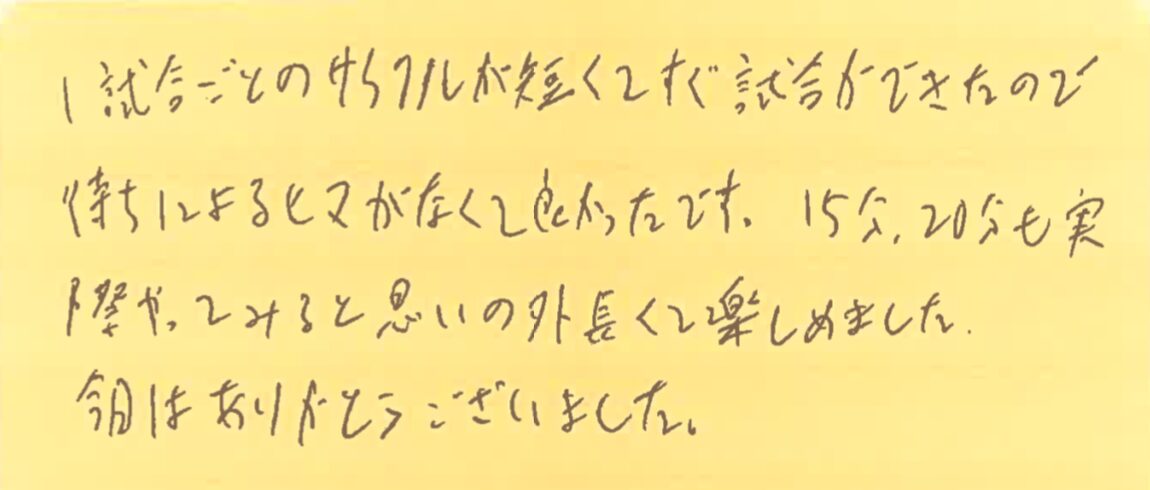 1試合ごとのサイクルが短くてすぐ試合ができたので
待ちによるヒマがなくて良かったです。15分、20分も実
際やってみると思いの外長くて楽しめました。
今日はありがとうございました。